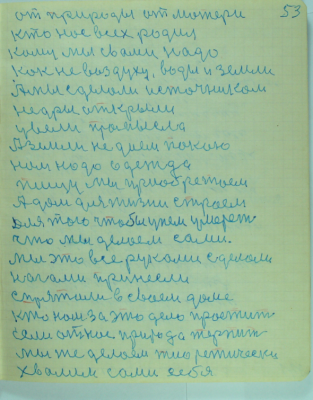 53
от природы от матери
кто нас всех родил
кому мы с вами надо
как не воздуху, воды и земли
А мы сделали источником
недры открыли
увели промысла
А земли не даем покою
нам надо одежда
пищу мы приобретаем
А дом для жизни строем
для того чтобы в нем умереть
что мы делаем сами.
мы это все руками сделали
ногами принесли
спрятали в своем доме
кто нам за это дело простит
если от нас природа терпит
мы же делаем теоретически
хвалим сами себя